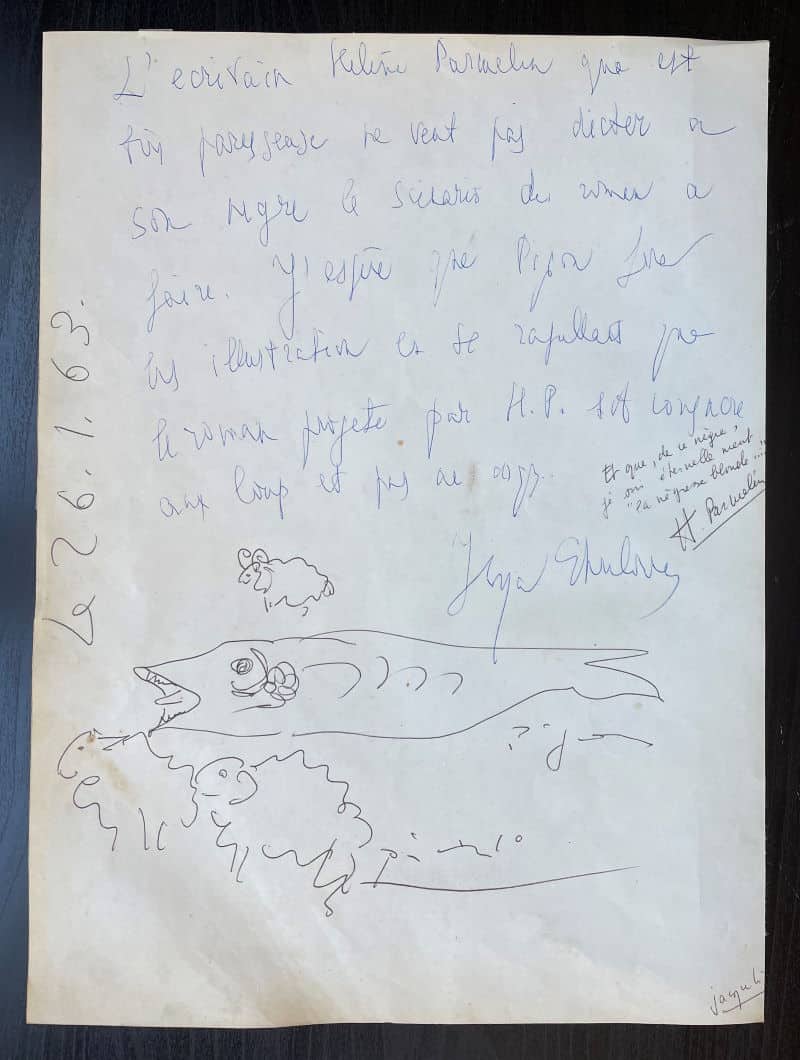 L'ecrivain Helène Parmelin que est
très paresseuse ne veut pas dicter a
son negre le scenario du roman a
faire. J'espère que Pignon fera
les illustration et se rapellant que
le roman projeté par H.P. est consacre
aux loup et pas au
Et que, de ce nègre,
je suis éternellement
"la négresse blonde"...
H. Parmelin
Ilya Ehrenbourg
Le 26.1.63.
Pignon
Picasso